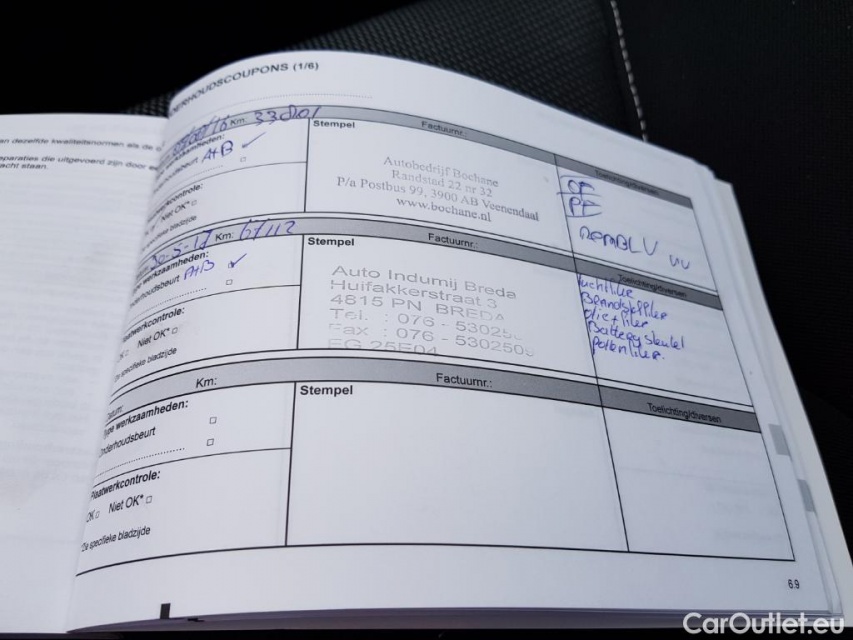 an dezelfde kwaliteitsnormen als de
paraties die uitgevoerd zijn door
acht staan.
DERHOUDSCOUPONS (1/6)
Km: 33801
Stempel
Factuurnr.:
Toelichting/diversen
A+B ✓
Autobedrijf Bochane
Randstad 22 nr 32
P/a Postbus 99, 3900 AB Veenendaal
www.bochane.nl
OF
PF
controle:
Niet OK*
bladzijde
30-5-17 Km: 67112
Stempel
Factuurnr.:
Toelichting/diversen
werkzaamheden:
derhoudsbeurt A+B ✓
Auto Indumij Breda
Huifakkerstraat 3
4815 PN BREDA
Tel. : 076 - 53025
Fax : 076 - 530250
EG 25E04
Luchtfilter
Brandstoffilter
Olie + filter
Batterij sleutel
Pollenfilter.
werkcontrole:
Niet OK*
specifieke bladzijde
Datum:
Km:
Stempel
Factuurnr.:
Toelichting/diversen
Type werkzaamheden:
Onderhoudsbeurt
Plaatwerkcontrole:
OK Niet OK*
*Zie specifieke bladzijde
6.9
CarOutlet.eu